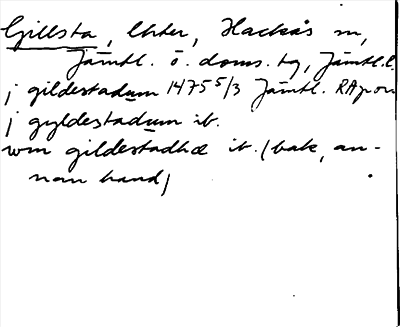 Gillsta, Utter, Hackås sn,
Jämtl. ö. doms. tg, Jämtl. l.
j gildestadum 1475 5/3 Jämtl. RAp or
j gyldestadum ib.
wm gildestadhæ ib. (bak, an-
nan hand)